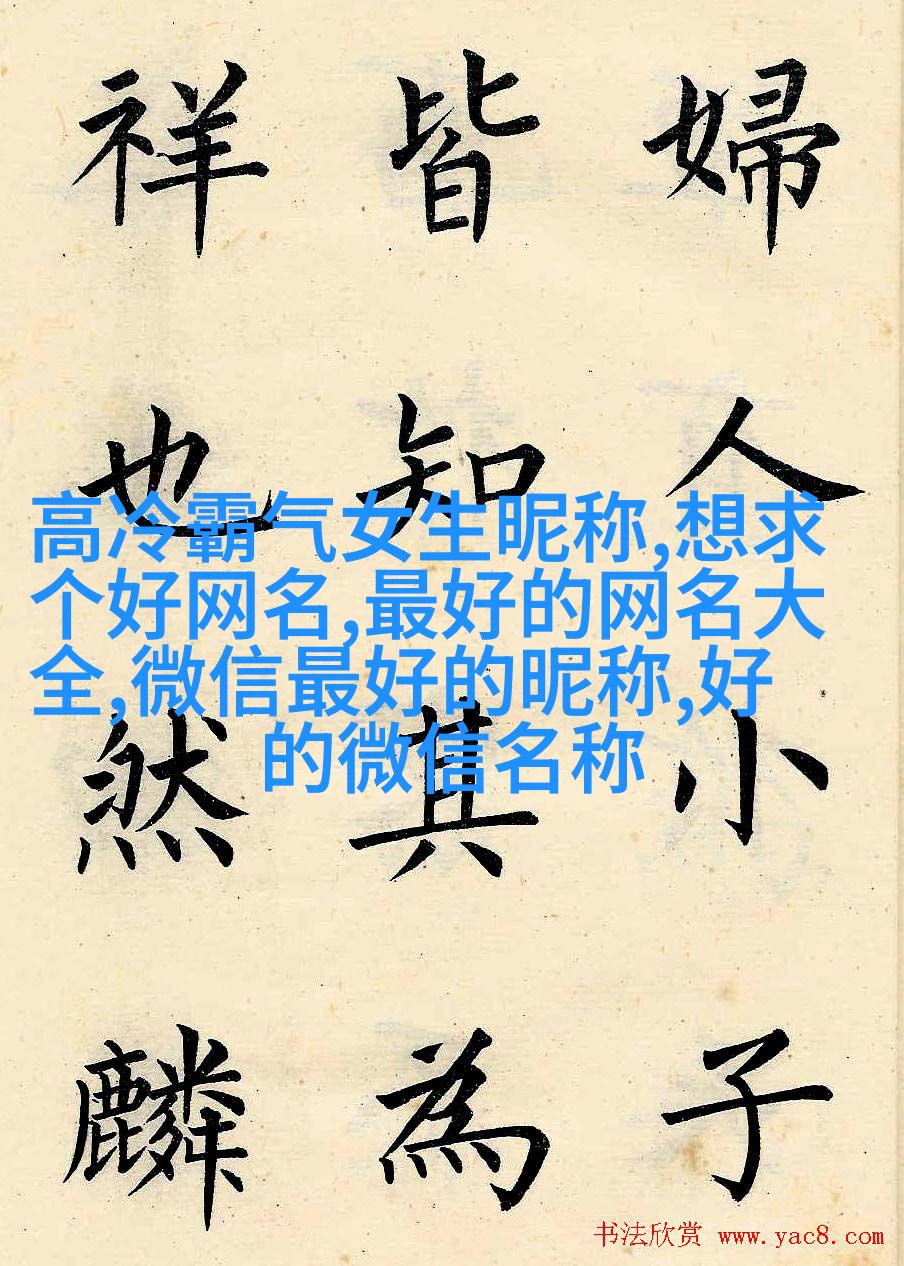 婦人小子
皆知其為
祥也然麟
高冷霸气女生昵称,想求
个好网名,最好的网名大
全,微信最好的昵称,好
的微信名称
书法欣赏 www.yac8.com